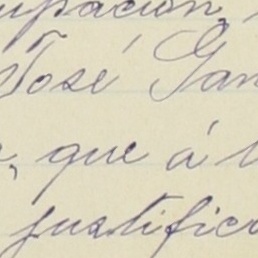 upación
José Gan
, que á
justific